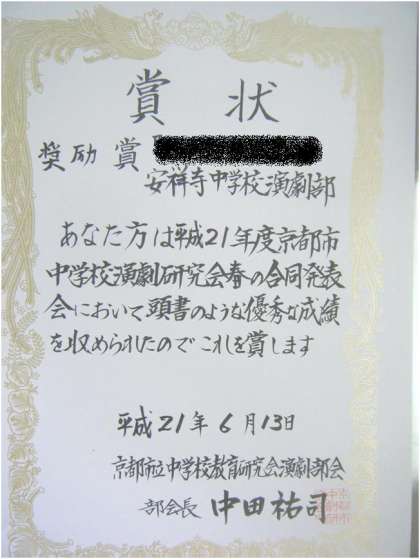 賞状
奨励賞
安祥寺中学校演劇部
あなた方は平成21年度京都市
中学校演劇研究会春の合同発表
会において頭書のような優秀な成績
を収められたのでこれを賞します
平成21年6月13日
京都市立中学校教育研究会演劇部会
部会長 中田祐司